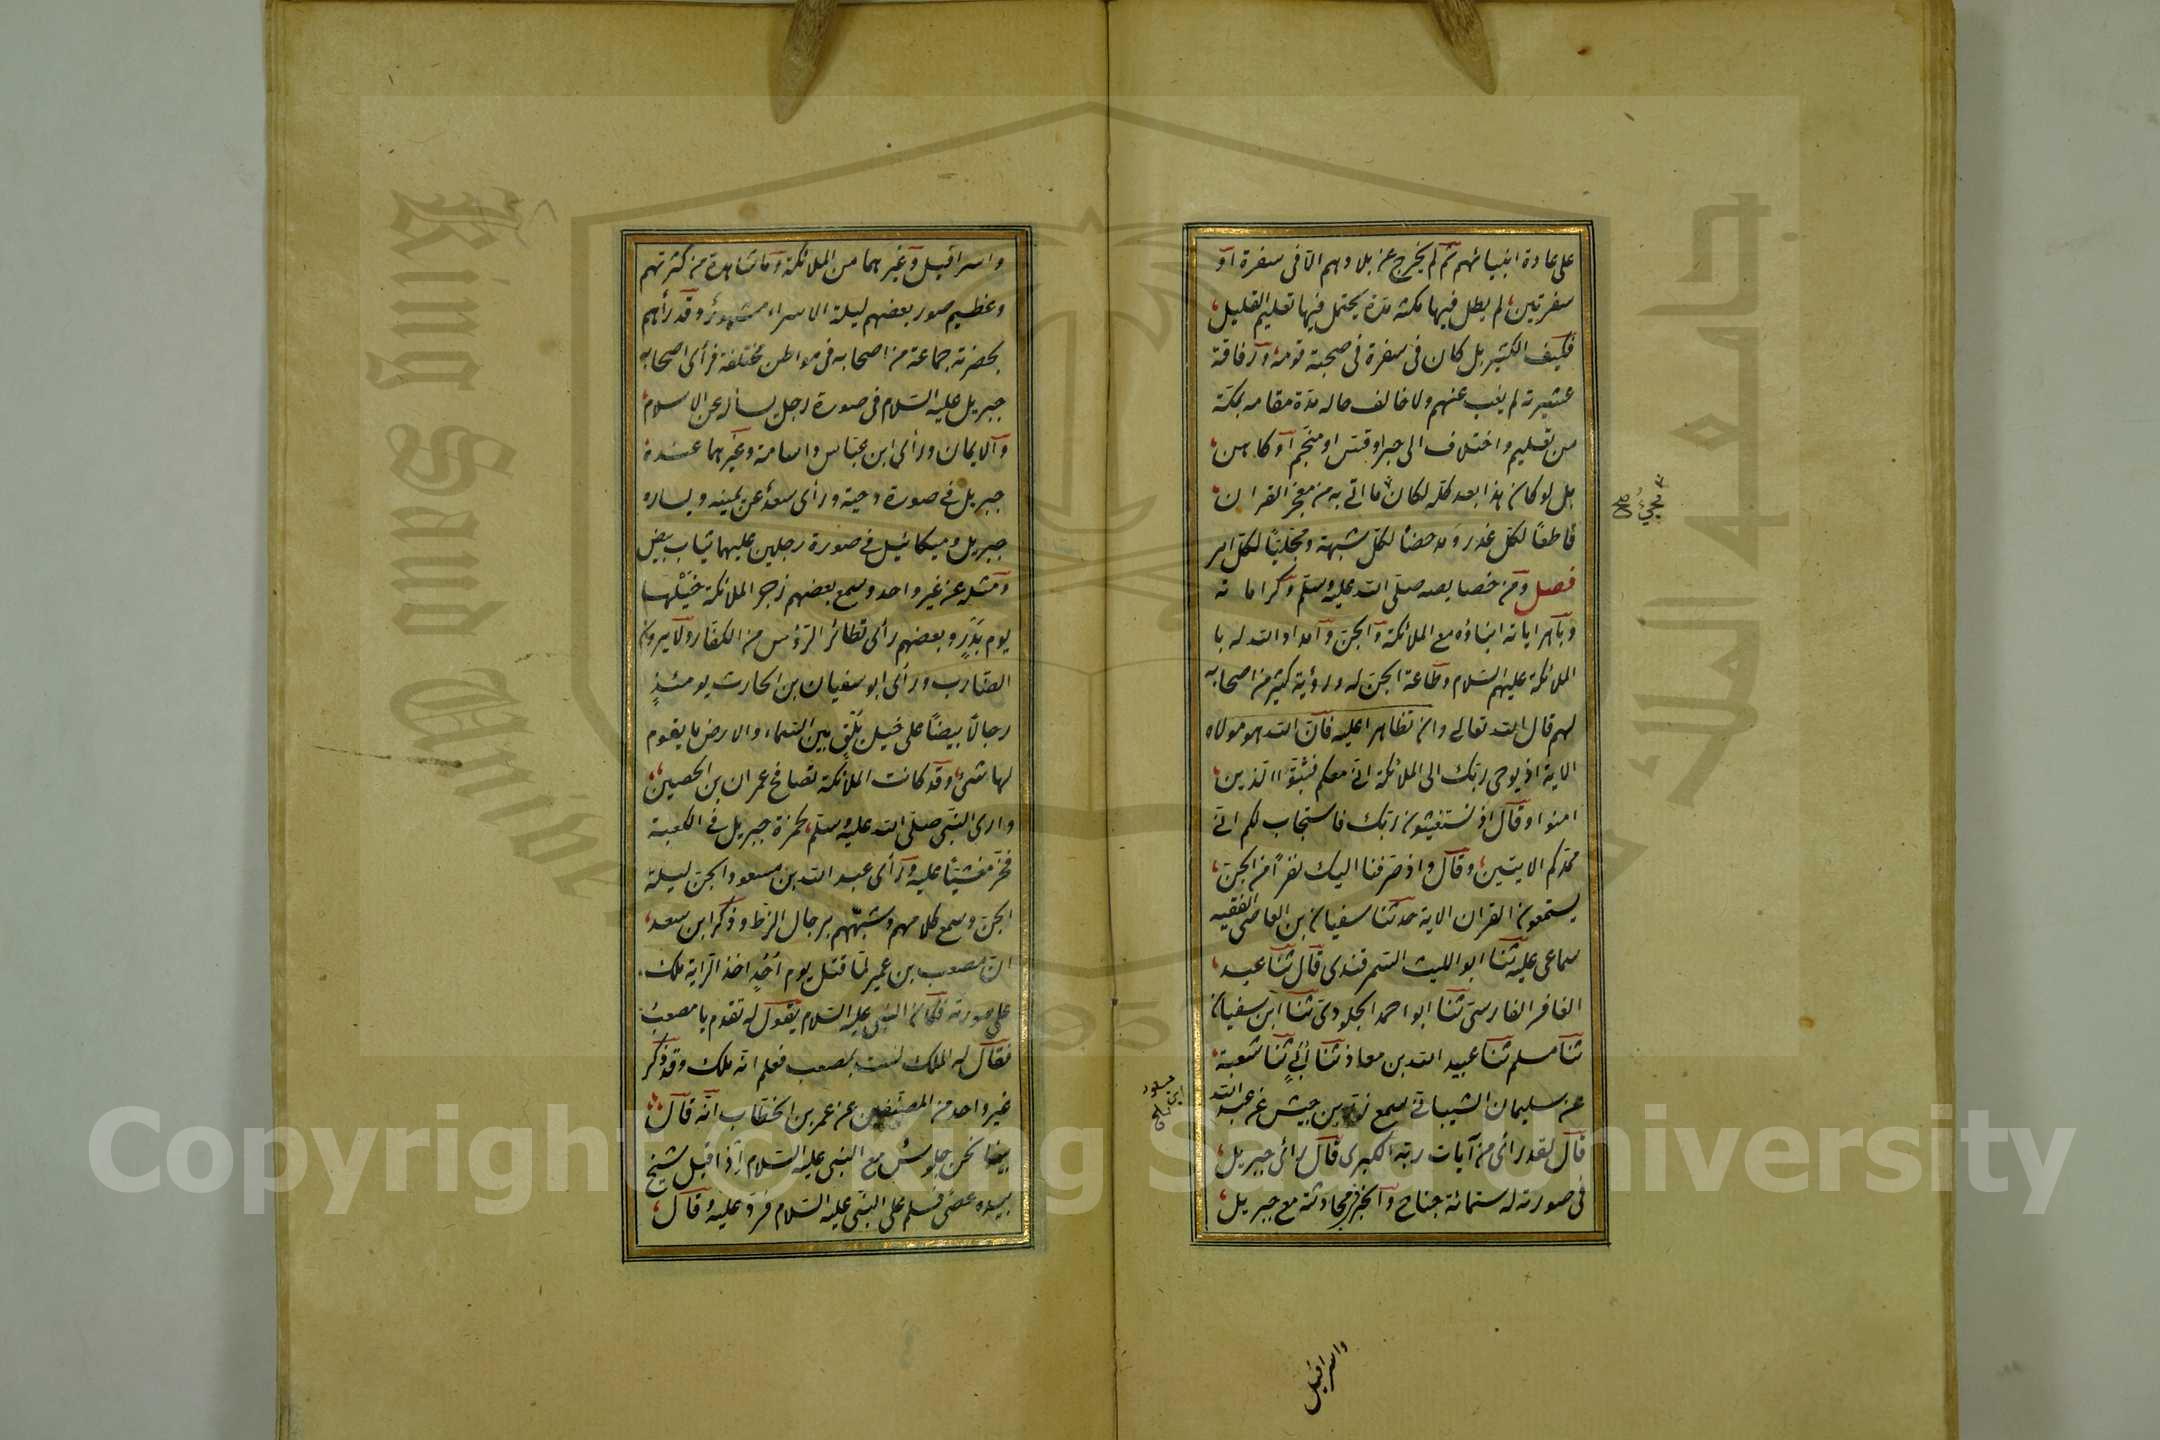 على عادة ابنيائهم ثم لم يخرج عن بلادهم الا فى سفرة او
سفرتين لم يطل فيها مكثه مدة يحتمل فيها تعليم القليل
فكيف الكثير بل كان فى سفرة فى صحبة قومه ورفاقة
عشيرته لم يغب عنهم ولا خالف حاله مدة مقامه بمكة
من تعليم واختلاف الى حبر او قس او منجم او كاهن
بل لو كان هذا بعد كله لكان ما اتى به من معجز القران
قاطعًا لكل عذر ومدحضًا لكل شبهة ومجليًا لكل امر
فصل ومن خصايصه صلى الله عليه وسلم وكراماته
وباهر اياته انباؤه مع الملائكة والجن وامداد الله له با
الملائكة عليهم السلام وطاعة الجن له ورؤية كثير من اصحابه
لهم قال الله تعالى وان تظاهرا عليه فان الله هو مولاه
الاية اذ يوحى ربك الى الملائكة انى معكم فثبتوا الذين
امنوا وقال اذ تستغيثون ربك فاستجاب لكم انى
ممدكم الايتين وقال واذ صرفنا اليك نفرًا من الجن
يستمعون القران الاية حدثنا سفيان بن العاصى الفقيه
سماعى عليه ثنا ابو الليث السمرقندى قال ثنا عبد
الغافر الفارسى ثنا ابو احمد الجلودى ثنا ابن سفيان
ثنا مسلم ثنا عبيد الله بن معاذ ثنا أبي ثنا شعبة
عن سليمان الشيبانى سمع زر بن حبيش عن عبد الله
قال لقد رأى من آيات ربه الكبرى قال رأى جبريل
فى صورته له ستمائة جناح والخبر فى محادثته مع جبريل
مجيئ
صح
ابن مسعود
واسرافيل
واسرافيل وغيرهما من الملائكة وما شاهده من كثرتهم
وعظيم صور بعضهم ليلة الاسراء مشهور وقد رأهم
بحضرته جماعة من اصحابه فى مواطن مختلفة فرأى اصحابه
جبريل عليه السلام فى صورة رجل يسأله عن الاسلام
والايمان ورأى ابن عباس واسامة وغيرهما عنده
جبريل فى صورة دحية ورأى سعد عن يمينه ويساره
جبريل وميكائيل فى صورة رجلين عليهما ثياب بيض
ومثله عن غير واحد وسمع بعضهم زجر الملائكة خيلها
يوم بدر وبعضهم رأى تطائر الرؤس من الكفار ولا يرون
الضارب ورأى ابو سفيان بن الحارث يومئذ
رجالًا بيضًا على خيل بلق بين السماء والارض ما يقوم
لها شئ وقد كانت الملائكة تصافح عمران بن الحصين
وارى النبى صلى الله عليه وسلم لحمزة جبريل فى الكعبة
فخر مغشيًا عليه ورأى عبد الله بن مسعود الجن ليلة
الجن وسمع كلامهم وشبههم برجال الزط وذكر ابن سعد
ان مصعب بن عمير لما قتل يوم أحد اخذ الراية ملك
على صورته فكان النبى عليه السلام يقول له تقدم يا مصعب
فقال له الملك لست بمصعب فعلم انه ملك وقد ذكر
غير واحد من المصنفين عن عمر بن الخطاب انه قال
بينا نحن جلوس مع النبى عليه السلام اذ اقبل شيخ
بيده عصى فسلم على النبى عليه السلام فرد عليه وقال
Copyright © King Saud University